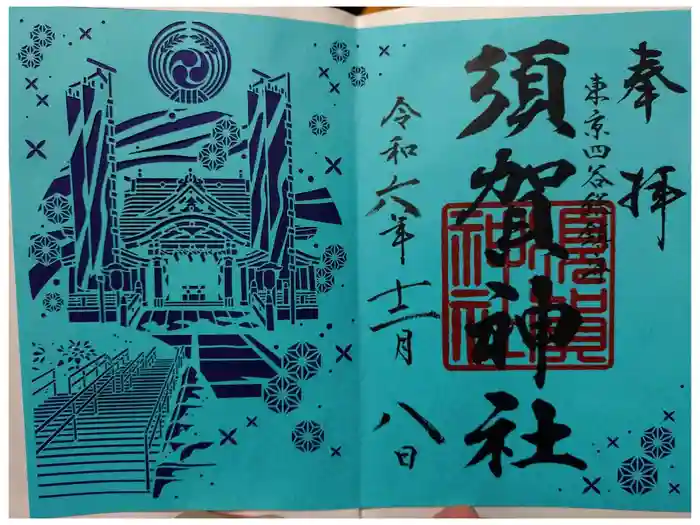 奉拝
東京四谷総鎮守
須賀神社
須賀神社
令和六年十二月八日